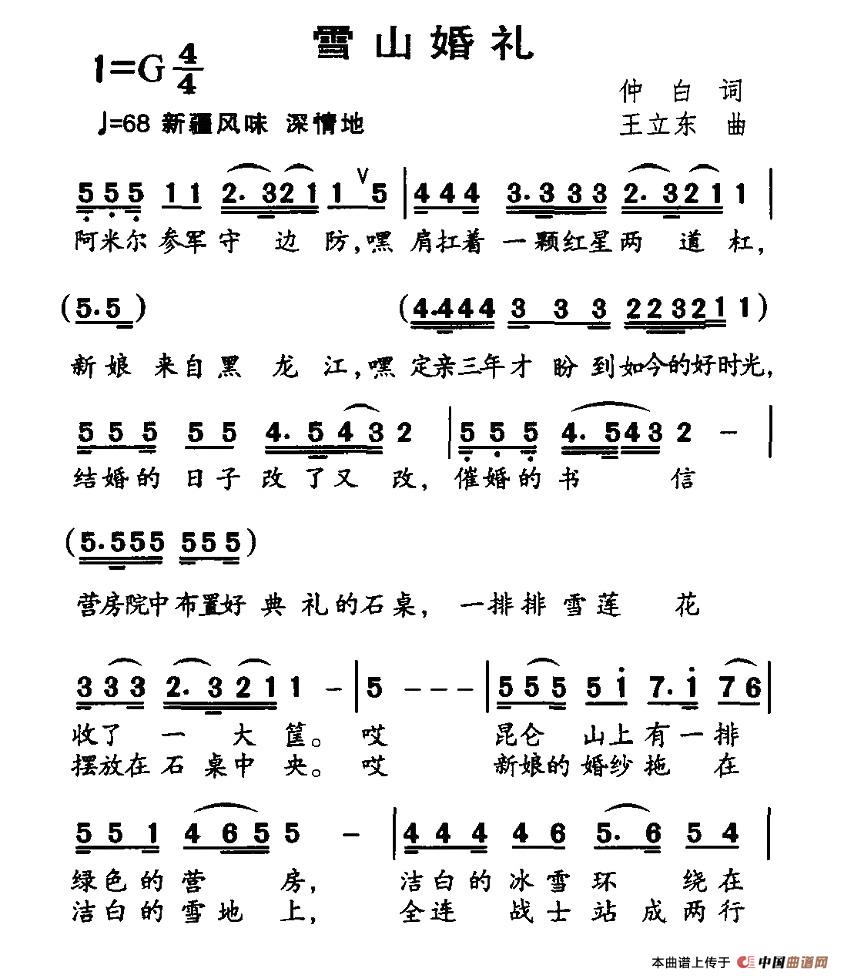 雪山婚礼
1=G 4/4
仲白 词
♩=68 新疆风味 深情地
王立东 曲
5 5 5 1 1 2. 3 2 1 1 ∨ 5 | 4 4 4 3. 3 3 3 2. 3 2 1 1 |
阿米尔参军守边防,嘿肩扛着一颗红星两道杠,
(5. 5) (4. 4 4 4 3 3 3 2 2 3 2 1 1 1)
新娘来自黑龙江,嘿定亲三年才盼到如今的好时光,
5 5 5 5 5 4. 5 4 3 2 | 5 5 5 4. 5 4 3 2 - |
结婚的日子改了又改,催婚的书信
(5. 5 5 5 5 5 5)
营房院中布置好典礼的石桌,一排排雪莲花
3 3 3 2. 3 2 1 1 - | 5 - - - | 5 5 5 5 i 7. i 7 6 |
收了一大筐。哎昆仑山上有一排
摆放在石桌中央。哎新娘的婚纱拖在
5 5 1 4 6 5 5 - | 4 4 4 4 6 5. 6 5 4 |
绿色的营房,洁白的冰雪环绕在
洁白的雪地上,全连战士站成两行
本曲谱上传于 中国曲谱网